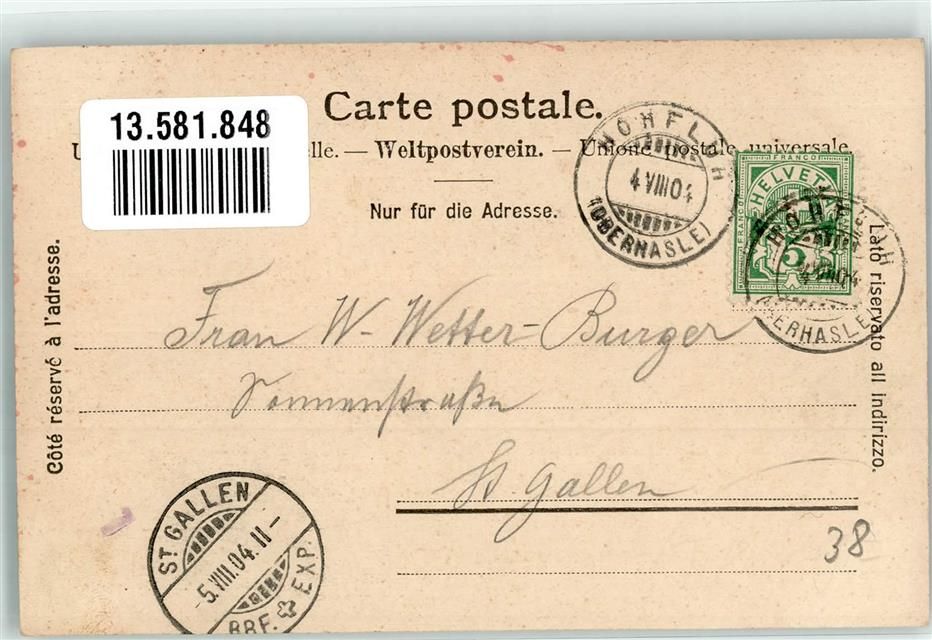 13.581.848
Carte postale.
U elle. — Weltpostverein. — Unione postale universale
Nur für die Adresse.
Côté réservé à l'adresse.
Lato riservato all indirizzo.
HOHFLUH
4 VIII 04
(OBERHASLE)
FRANCO
HELVETIA
FRANCO
5
HOHFLUH
4 VIII 04
(OBERHASLE)
Frau W- Wetter-Burger
Sonnenstraße
St. Gallen
38
ST. GALLEN
-5.VIII.04.11-
BRF. EXP.